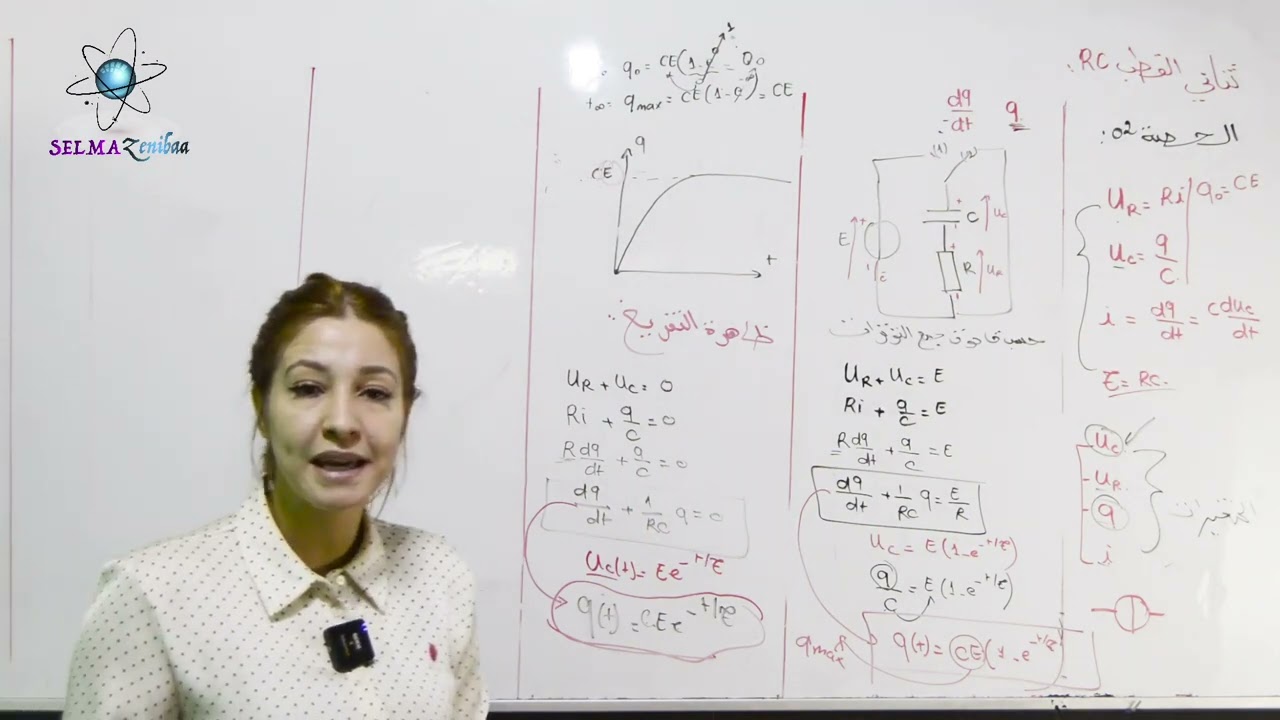 SELMA Zenibaa
ثنائي القطب RC:
الحصة 02:
U_R = Ri
q₀ = CE
U_C = q/C
i = dq/dt = C dU_C/dt
τ = RC
U_C
U_R
q
i
المتغيرات
dq/dt q
(1) (2)
E
C
U_C
R
U_R
حسب قانون جمع التوترات
U_R + U_C = E
Ri + q/C = E
R dq/dt + q/C = E
dq/dt + 1/RC q = E/R
U_C = E(1 - e^{-t/τ})
q/C = E(1 - e^{-t/τ})
q(t) = CE(1 - e^{-t/τ})
q max
+∞: q max = CE(1 - e^{-∞}) = CE
q
CE
t
ظاهرة التفريغ:
U_R + U_C = 0
Ri + q/C = 0
R dq/dt + q/C = 0
dq/dt + 1/RC q = 0
U_C(t) = E e^{-t/τ}
q(t) = CE e^{-t/τ}